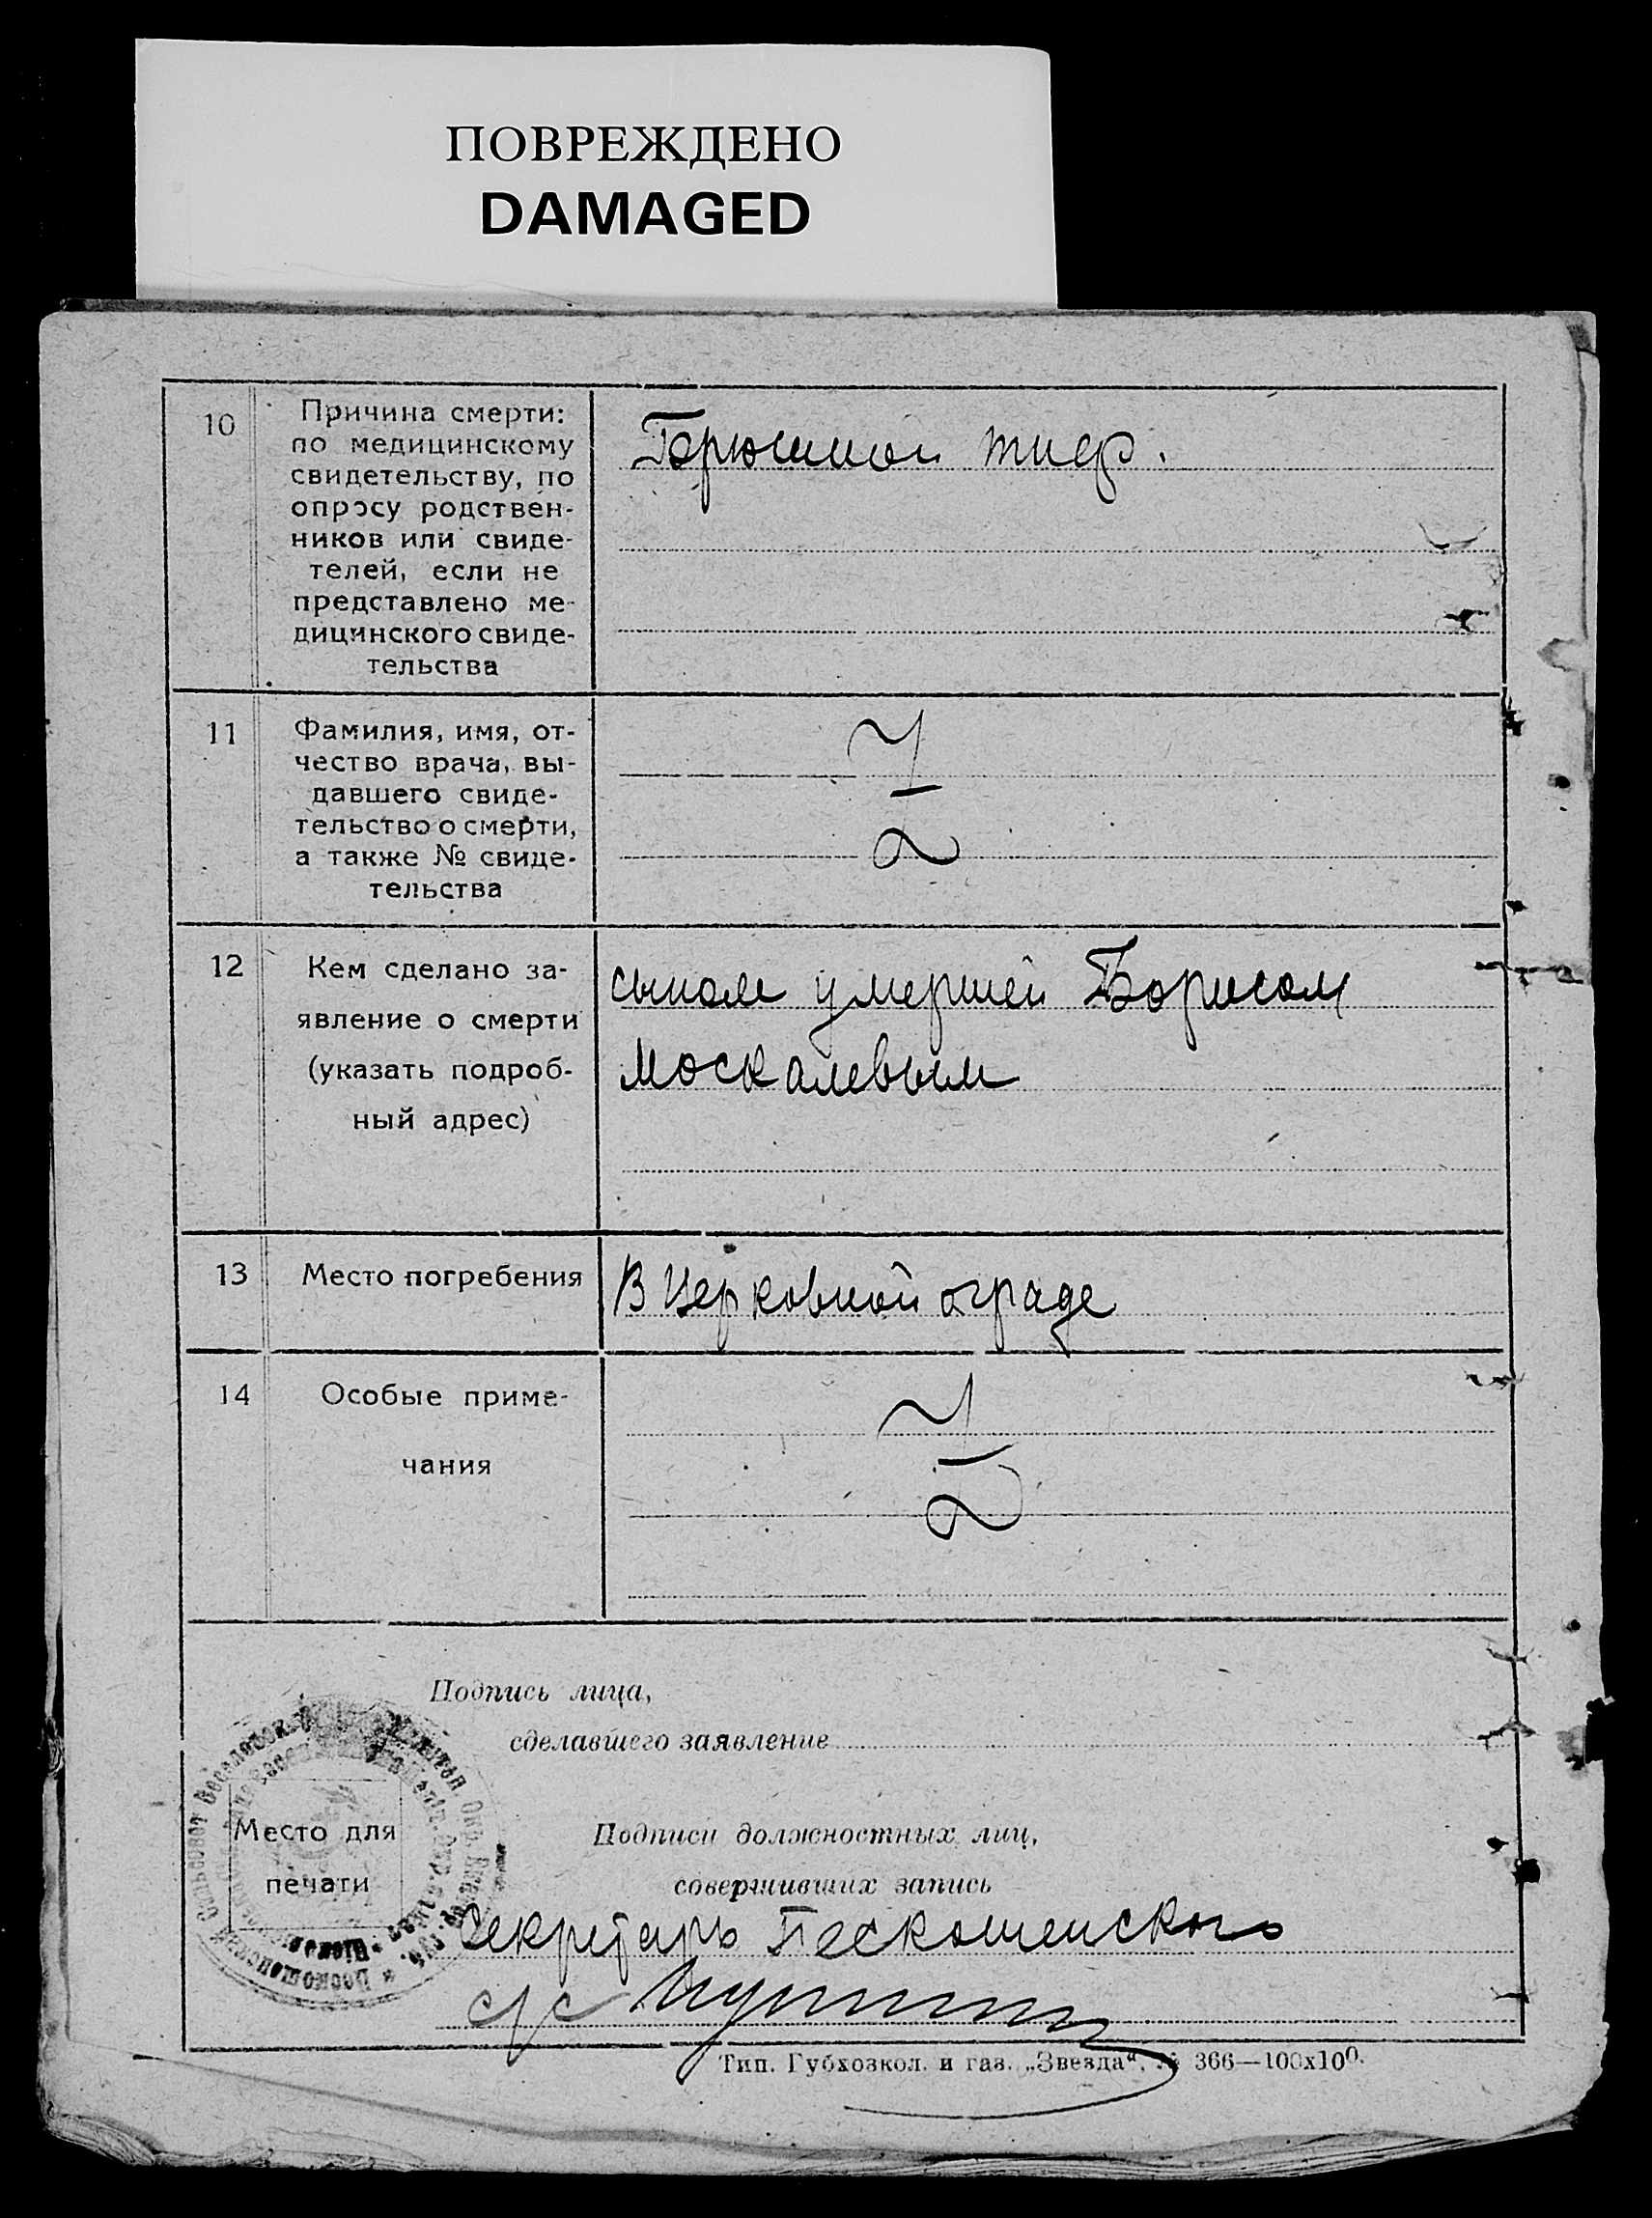 ПОВРЕЖДЕНО
DAMAGED
10
Причина смерти:
по медицинскому
свидетельству, по
опросу родствен-
ников или свиде-
телей, если не
представлено ме-
дицинского свиде-
тельства
Брюшной тиф.
11
Фамилия, имя, от-
чество врача, вы-
давшего свиде-
тельство о смерти,
а также № свиде-
тельства
12
Кем сделано за-
явление о смерти
(указать подроб-
ный адрес)
сыном умершей Борисом
Москалевым
13
Место погребения
В Церковной ограде
14
Особые приме-
чания
Подпись лица,
сделавшего заявление
Место для
печати
Подписи должностных лиц,
совершивших запись
Секретарь Пескошенского
с/с
Тип. Губхозкол. и газ. „Звезда“. № 366—100х100.